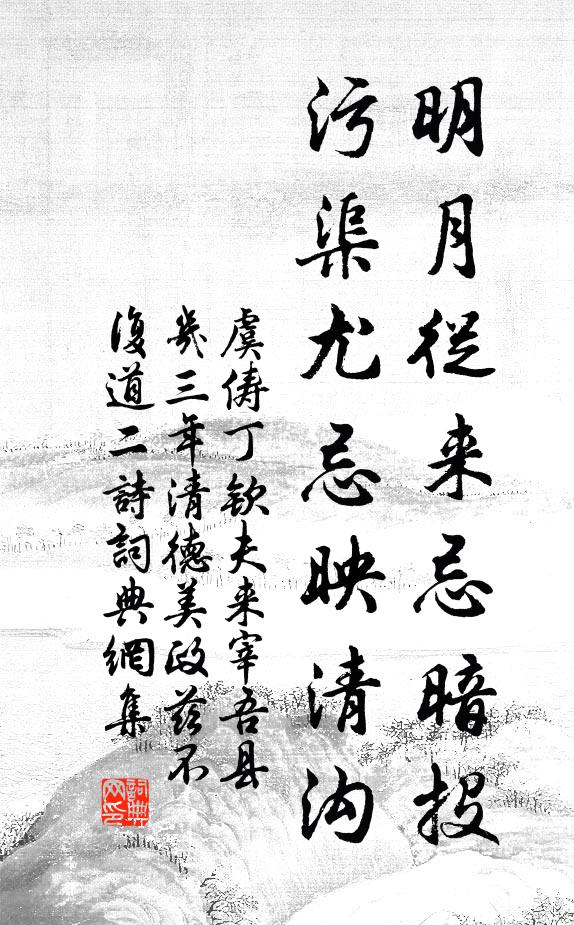 明月從来忌暗投
污渠尤忌映清沟
虞俦丁欽夫来宰吾县
幾三年清德美政兹不
復道二詩詞典網集
詞典
网印